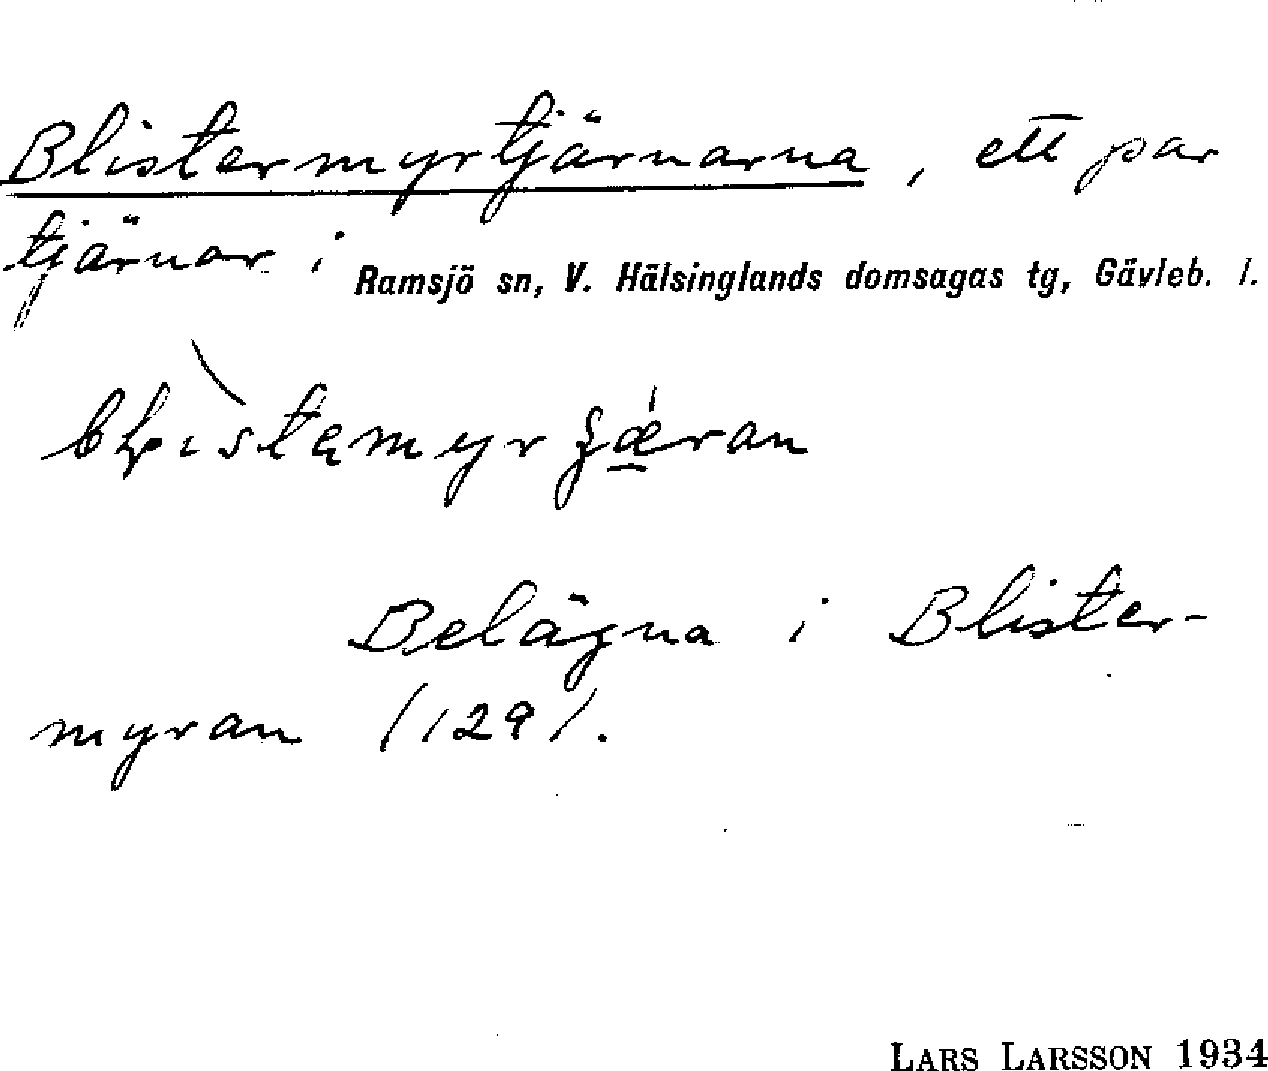 Blistermyrtjärnarna, ett par
tjärnar i Ramsjö sn, V. Hälsinglands domsagas tg, Gävleb. l.
Belägna i Blister-
myran (129).
LARS LARSSON 1934